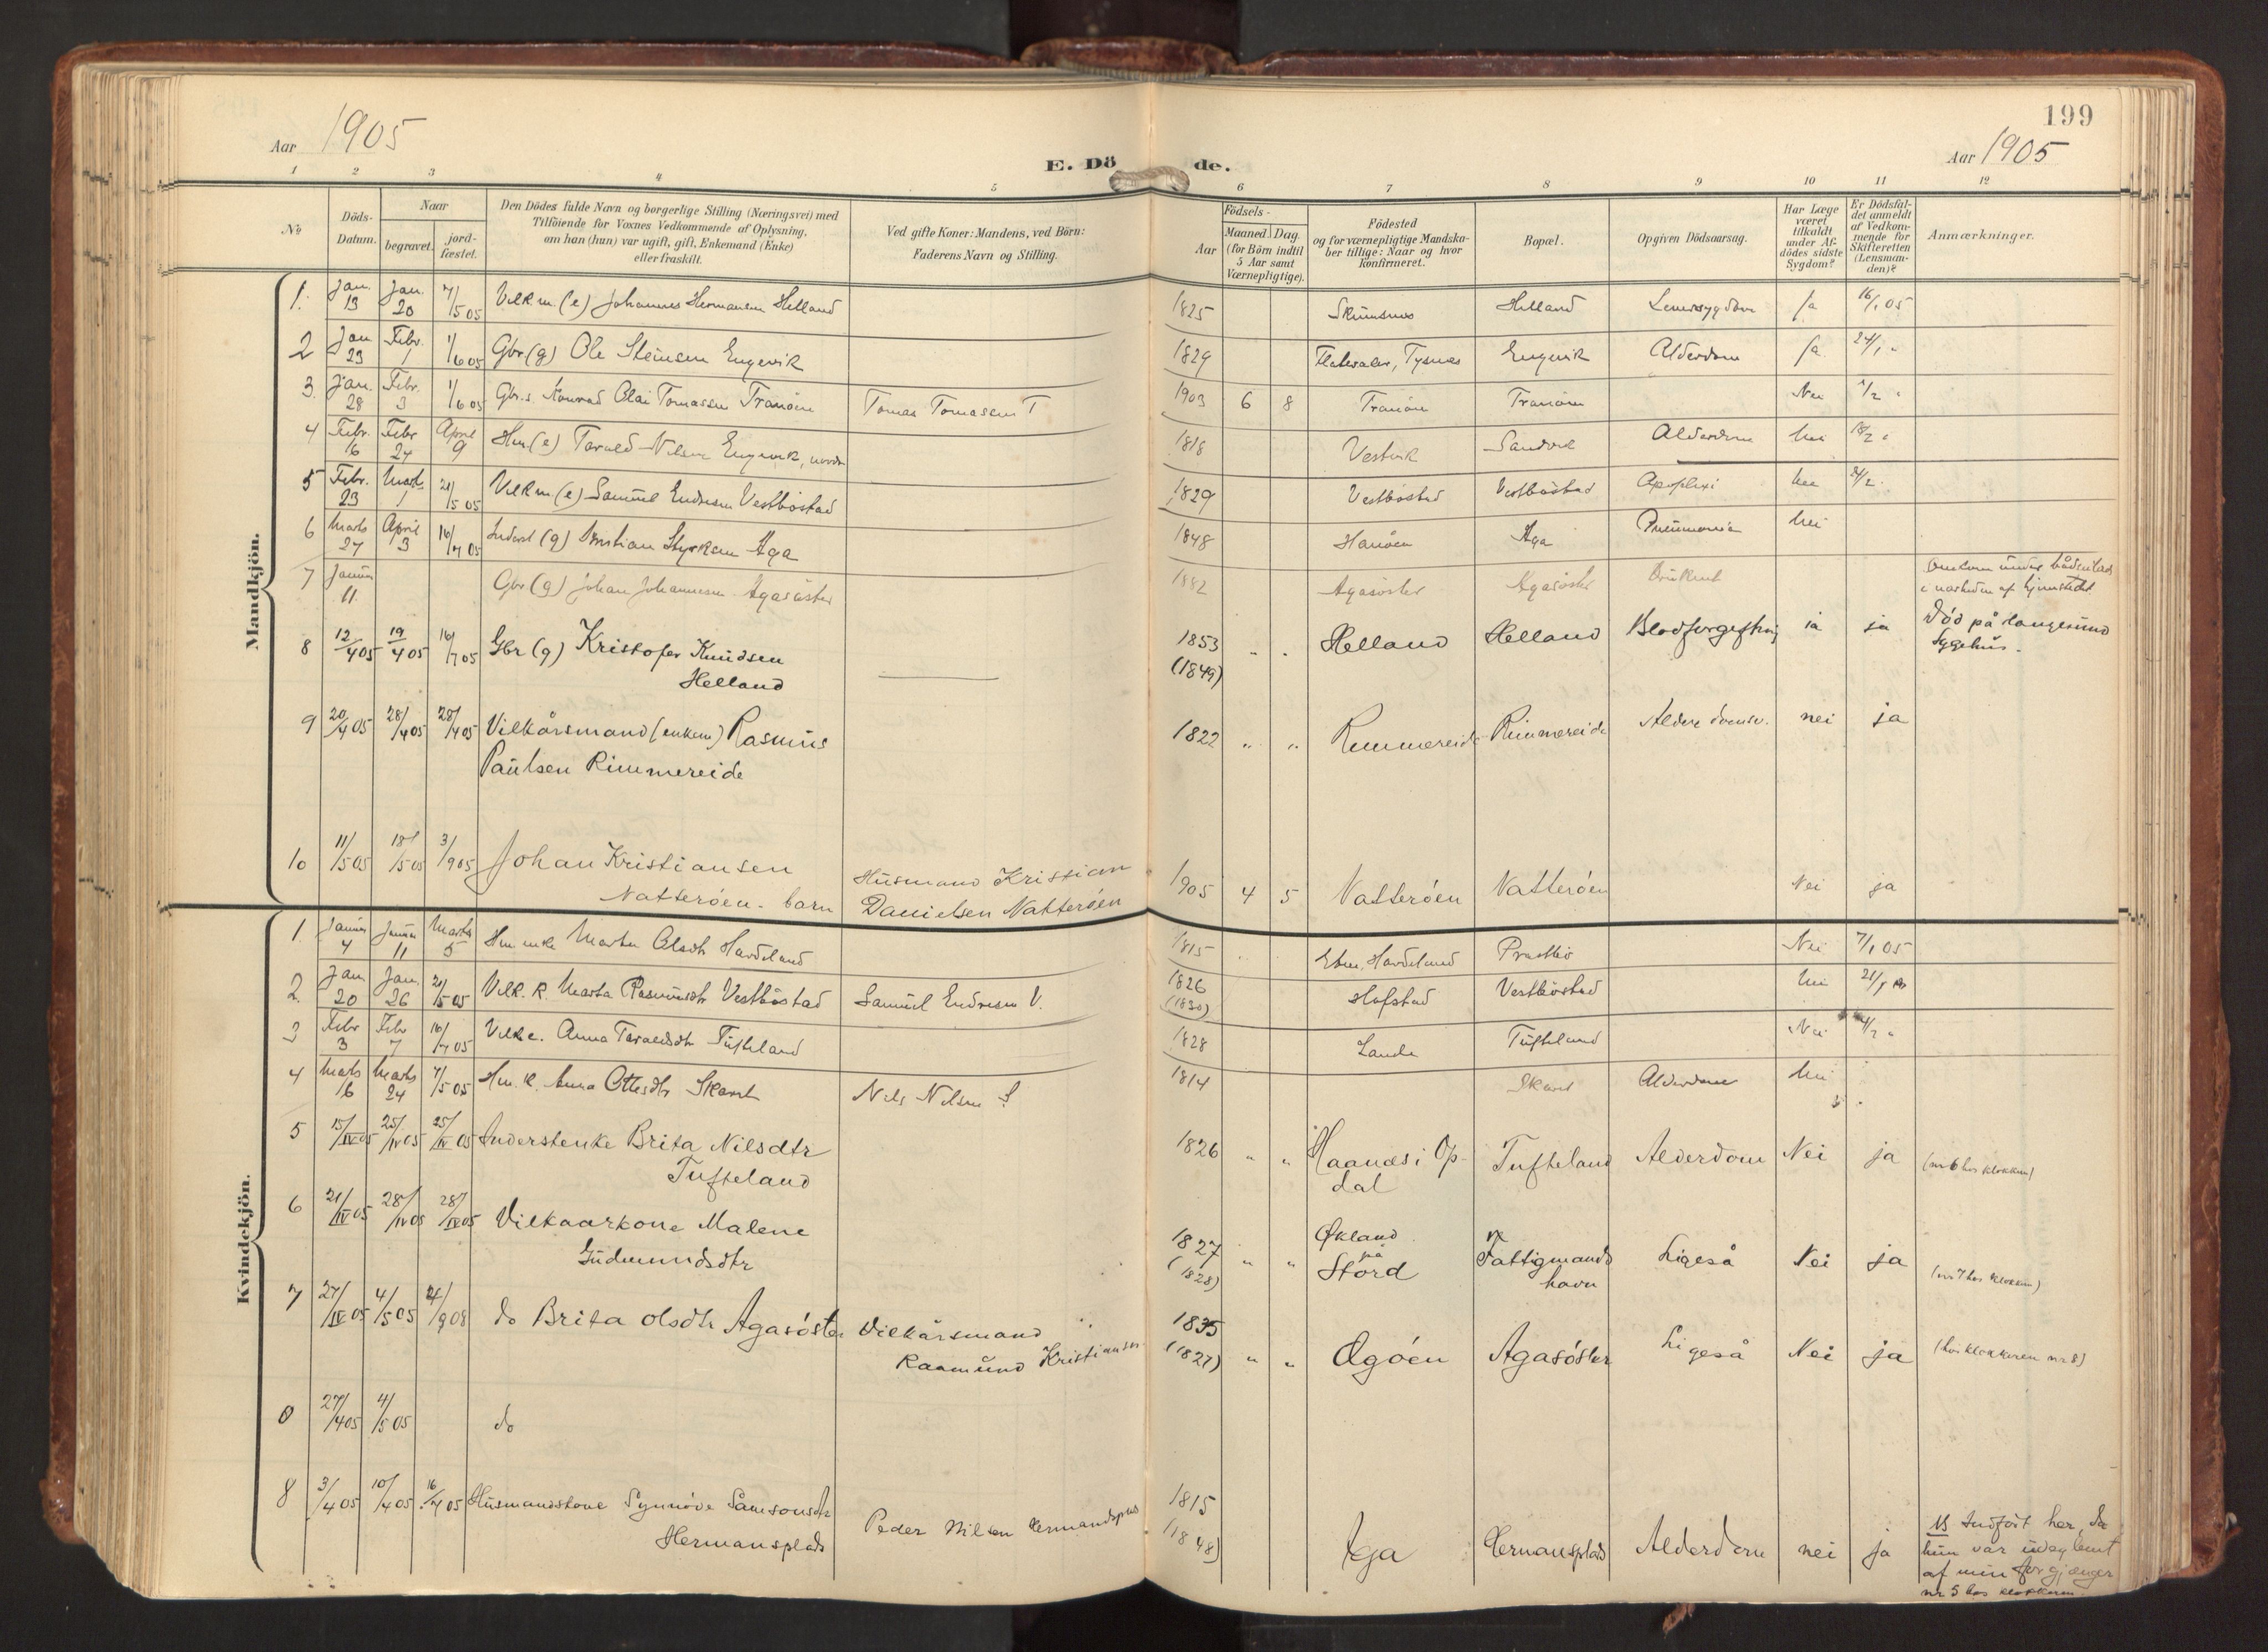 199
Aar 1905
E. Dö de.
Aar 1905
1 2 3 4 5 6 7 8 9 10 11 12
№
Döds-
Datum.
Naar
begravet.
jord-
fæstet.
Den Dödes fulde Navn og borgerlige Stilling (Næringsvei) med
Tilföiende for Voxnes Vedkommende af Oplysning,
om han (hun) var ugift, gift, Enkemand (Enke)
eller fraskilt.
Ved gifte Koner: Mandens, ved Börn:
Faderens Navn og Stilling.
Födsels-
Aar
Maaned. Dag.
(for Börn indtil
5 Aar samt
Værnepligtige).
Födested
og for værnepligtige Mandska-
ber tillige: Naar og hvor
konfirmeret.
Bopæl.
Opgiven Dödsaarsag.
Har Læge
været
tilkaldt
under Af-
dödes sidste
Sygdom?
Er Dödsfal-
det anmeldt
af Vedkom-
mende for
Skifteretten
(Lensman-
den)?
Anmærkninger.
Mandkjön.
1. Jan. 13 Jan. 20 7/5 05 Vilk m. (e) Johannes Hermansen Helland 1825 Skumsnes Helland Ja 16/1 05
2 Jan 23 Febr. 1 1/6 05 Gbr (g) Ole Steinsen Engevik 1829 Tysnes Engevik Alderdom Ja 24/1 "
3. Jan. 28 Febr. 3 1/6 05 Gbr. s. Konrad Olai Tomassen Tranöen Tomas Tomassen T 1903 6 8 Tranöen Tranöen Nei 1/2 "
4 Febr. 16 Febr 24 April 9 Hm (e) Torald Nilsen Engevik, 1818 Vestvik Sandvik Alderdom Nei 18/2 "
5 Febr. 23 Marts 1 21/5 05 Vilk m (e) Samuel Endresen Vestböstad 1829 Vestböstad Vestböstad Apoplexi Nei
6 Marts 27 April 3 16/7 05 Inderst (g) Kristian Styrksen Aga 1848 Hanöen Aga Pneumonia Nei
7 Januar 11. Gbr (g) Johan Johannesen Agasöster 1882 Agasöster Agasöster Druknet Omkom under
i nærheden af hjemstedet
8 12/4 05 19/4 05 16/7 05 Gbr (g) Kristofer Knudsen
Helland
1853
(1849) " " Helland Helland Blodforgiftning ja ja Död på Haugesund
Sygehus.
9 20/4 05 28/4 05 28/4 05 Vilkårsmand (enkem) Rasmus
Paulsen Rimmereide
1822 " " Rimmereide Rimmereide nei ja
10 11/5 05 18/5 05 3/9 05 Johan Kristiansen
Natteröen - barn
Husmand Kristian
Danielsen Natteröen
1905 4 5 Natteröen Natteröen Nei ja
Kvindekjön.
1. Januar 4 Januar 11 Marts 5 Hm enke Marta Olsdtr Havdeland 1815 Havdeland Prestbö Nei 7/1 05
2. Jan 20 Jan. 26 21/5 05 Vilk. k. Marta Rasmusdtr Vestböstad Samuel Endresen V. 1826
(1830) Hofstad Vestböstad Nei
3 Febr 3 Febr 7 16/7 05 Vilk e. Anna Toraldsdtr Tufteland 1828 Lande Tufteland Nei 4/2 "
4 Marts 16 Marts 24 7/5 05 Hm. k. Anna Ottesdtr Skaret Nils Nilsen S 1814 Skaret Alderdom Nei
5 15/IV 05 25/IV 05 25/IV 05 Inderstenke Brita Nilsdtr
Tufteland
1826 " " Haanæs i Op-
dal
Tufteland Alderdom Nei ja (nr 6 hos klokkeren)
6 21/IV 05 28/IV 05 28/IV 05 Vilkaarkone Malene
Gudmundsdtr
1827
(1828) " " Økland
på
Stord
Fattigmands
havn
Ligeså Nei ja (nr 7 hos klokkeren)
7 27/IV 05 4/5 05 do Brita Olsdtr Agasöster Vilkårsmand
Rasmund Kristiansen
1835
(1827) " " Øgöen Agasöster Ligeså Nei ja (hos klokkeren nr 8)
27/4 05 4/5 05 do
8 3/4 05 10/4 05 16/7 05 Husmandskone Synnöve Samsonsdtr
Hermansplads
Peder Nilsen Hermandsplads
1815
(1848) Aga Hermansplads Alderdom nei ja NB Indfört her, da
hun var udeglemt
af min forgjænger
nr 5 hos klokkeren.